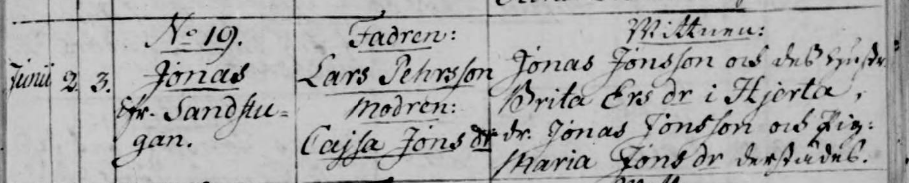 No 19. Fadren: Wittnen:
Junii 2. 3. Jonas Lars Pehrsson Jonas Jonsson och des hustr.
fr. Sandstu= Modren: Brita Ers dr i Hjerta,
gan. Cajsa Jons dr dr. Jonas Jonsson och Pig:
Maria Jons dr derstädes.